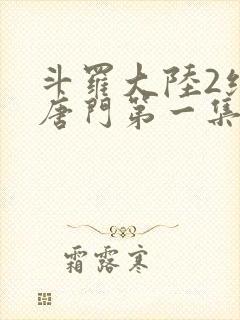 斗羅大陸2
唐門第一集
霜露寒